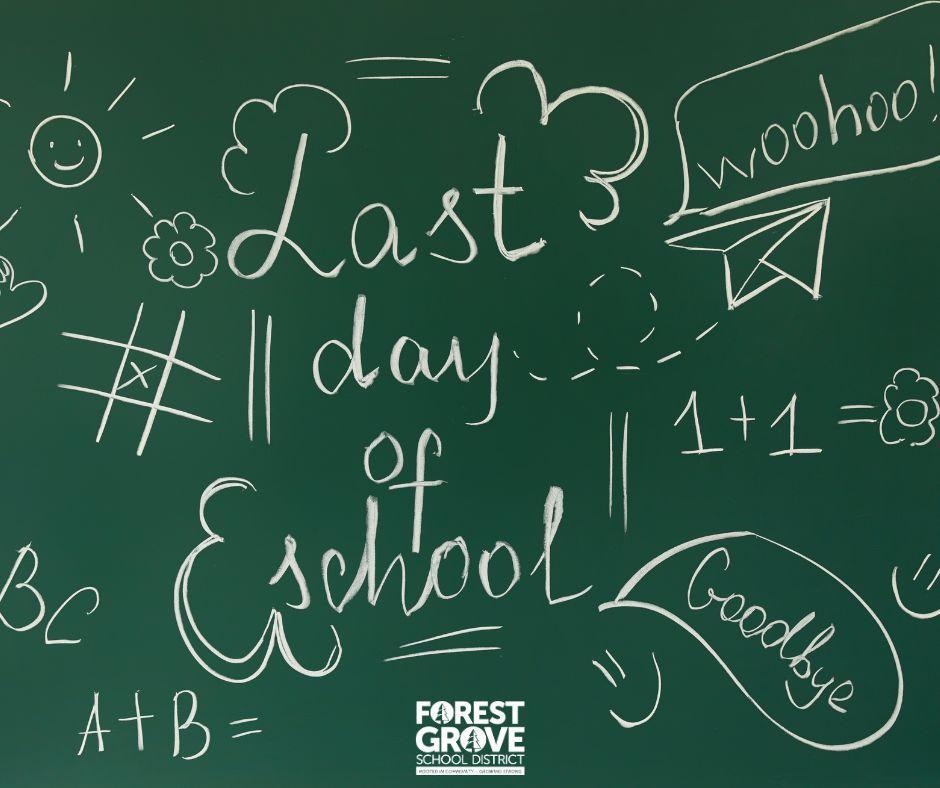 Last
day
of
school
woohoo!
x
1+1=
BC
A+B=
Goodbye
FOREST
GROVE
SCHOOL DISTRICT
ROOTED IN COMMUNITY - GROWING STRONG